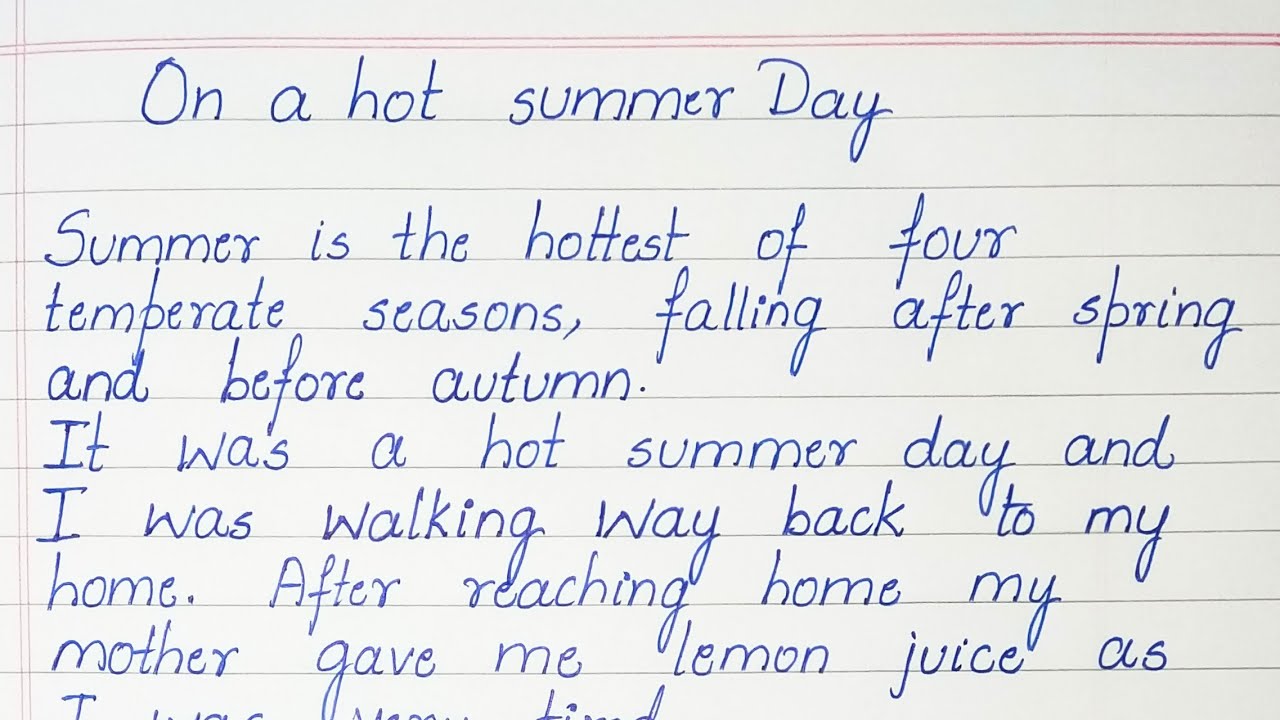 On a hot summer Day
Summer is the hottest of four
temperate seasons, falling after spring
and before autumn.
It was a hot summer day and
I was walking way back to my
home. After reaching home my
mother gave me lemon juice as
I was very